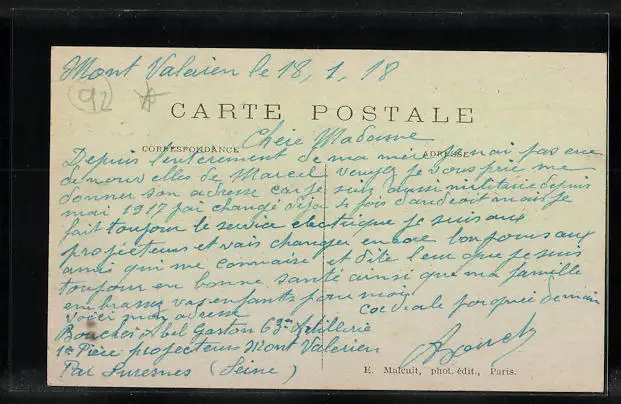 Mont Valerien le 18, 1, 18
92
CARTE POSTALE
Chere Madame
CORRESPONDANCE
ADRESSE
Depuis l'enterement de ma mère je nai pas eue
de nouvelles de Marcel veuyez je vous prie me
donner son adresse car je suis aussi militaire depuis
mai 1917 jai changé déja 4 fois dandroit mais je
fait toujour le service electrique je suis aux
projecteurs et vais changer encore bonjours aux
amis qui me connaise et dite leur que je suis
toujour en bonne santé ainsi que ma famille
embrassez vos enfants pour moi
cordiale poignée de main
voici mon adresse
Boucher Abel Gaston 63em Artillerie
1re Pièce projecteurs Mont Valerien
Par Suresnes (Seine)
E. Malcuit, phot.-édit., Paris.